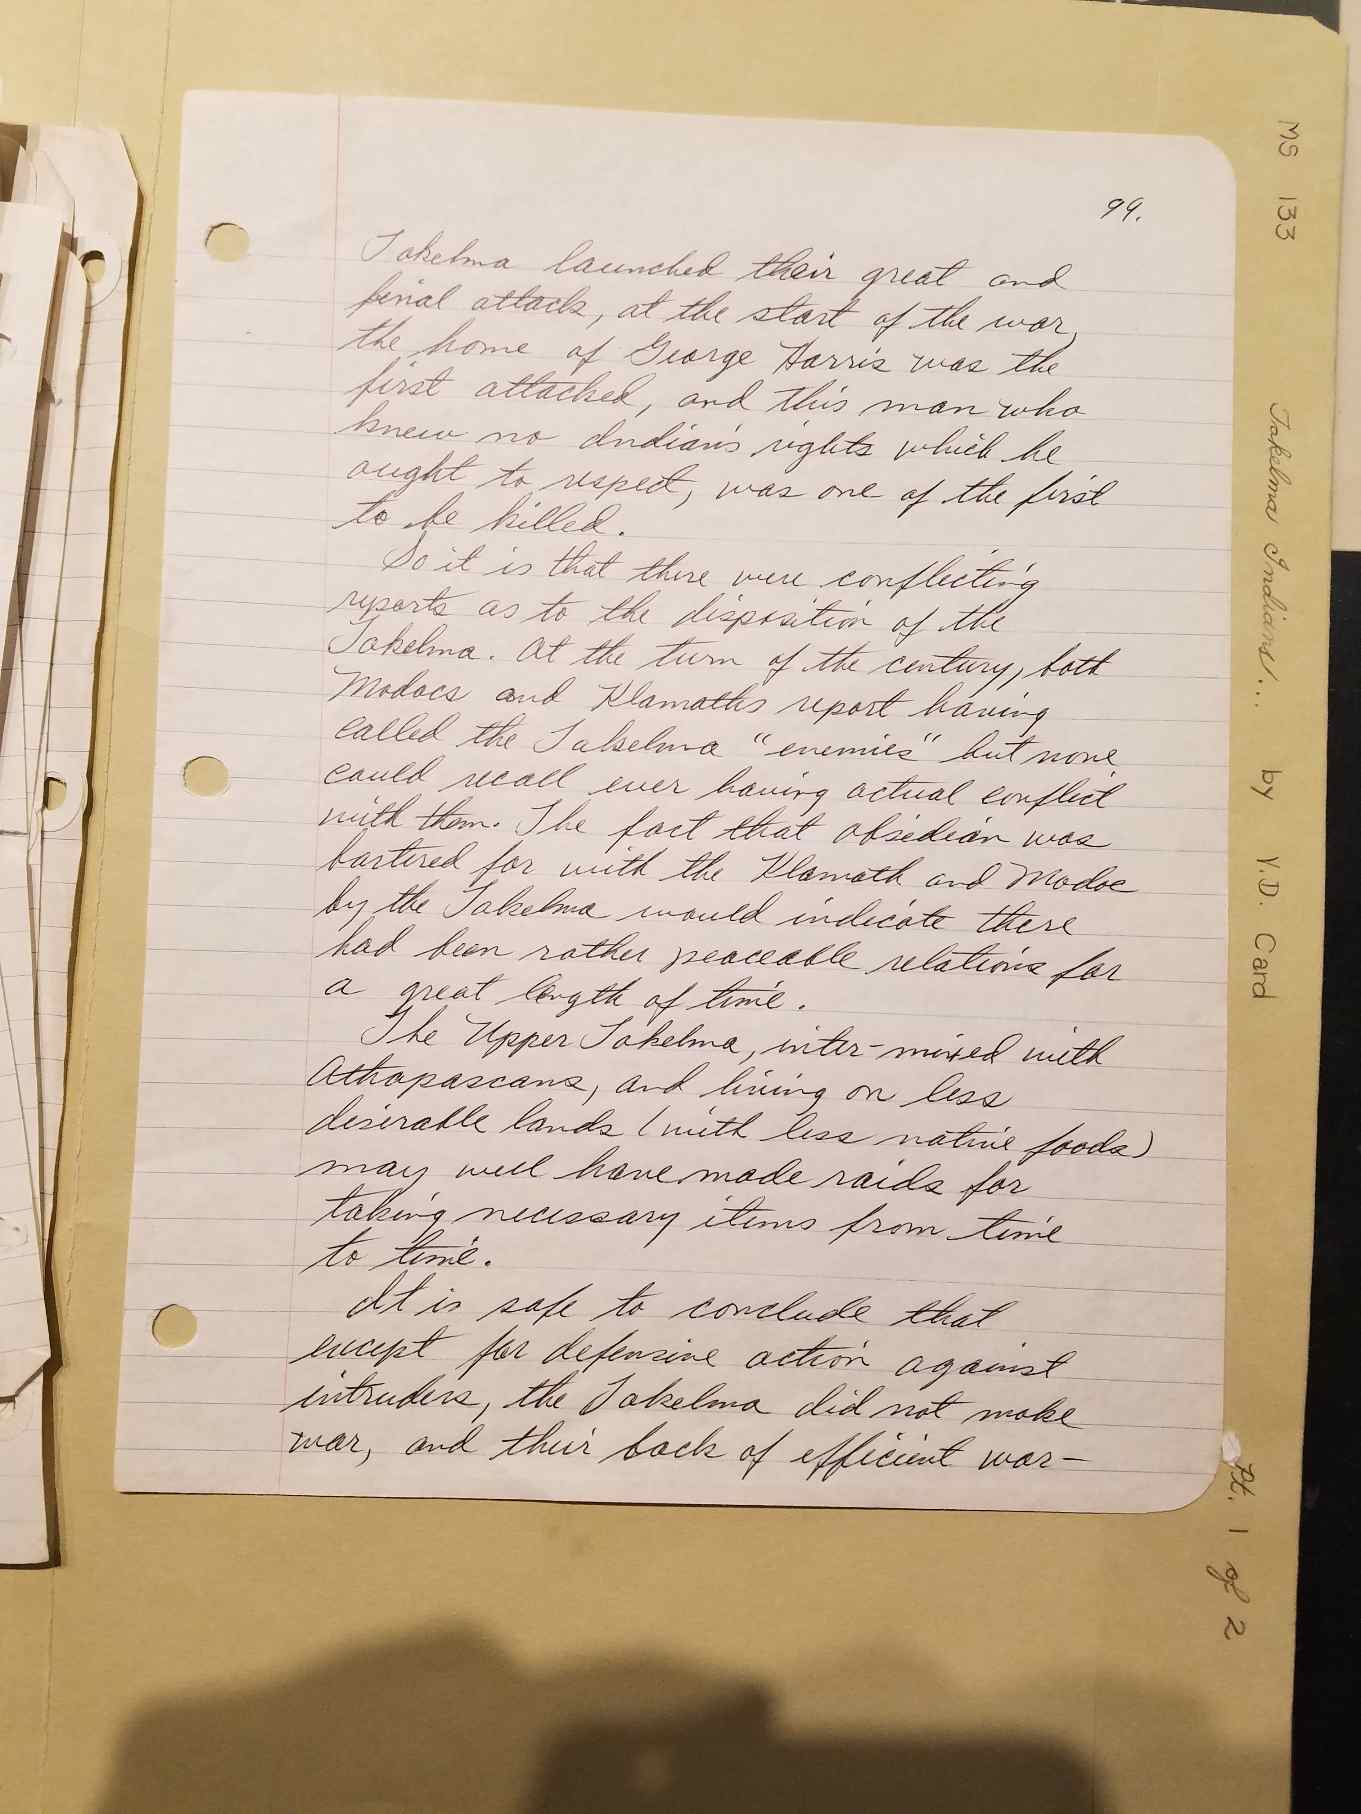 99.
Takelma launched their great and
final attack, at the start of the war,
the home of George Harris was the
first attacked, and this man who
knew no Indian's rights which he
ought to respect, was one of the first
to be killed.
So it is that there were conflicting
reports as to the disposition of the
Takelma. At the turn of the century, both
Modocs and Klamaths report having
called the Takelma "enemies" but none
could recall ever having actual conflict
with them. The fact that obsidian was
bartered for with the Klamath and Modoc
by the Takelma would indicate there
had been rather peaceable relations for
a great length of time.
The Upper Takelma, inter-mixed with
Athapascans, and living on less
desirable lands (with less native foods)
may well have made raids for
taking necessary items from time
to time.
It is safe to conclude that
except for defensive action against
intruders, the Takelma did not make
war, and their lack of efficient war-
MS 133 Takelma Indians... by V.D. Card
Pt. 1 of 2